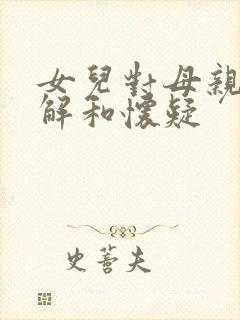 女兒對母親
解和懷疑
史蒈夫